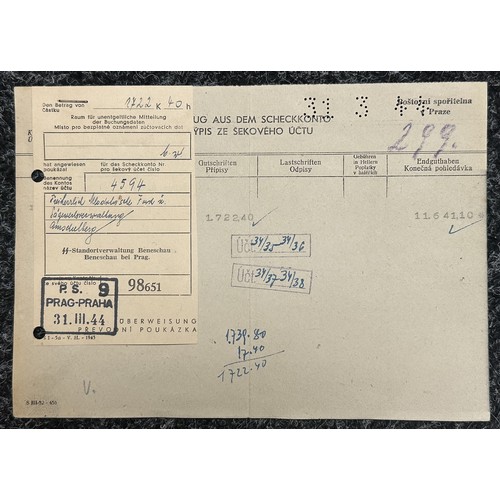 Den Betrag von
Částku
1722 K 40 h
Raum für unentgeltliche Mitteilung
der Buchungsdaten
Místo pro bezplatné oznámení zúčtovacích dat
hat angewiesen
poukázal
für das Scheckkonto Nr
pro šekový účet číslo
Benennung
des Kontos
název účtu
4594
Amschelberg
SS-Standortverwaltung Beneschau
Beneschau bei Prag.
a svého účtu číslo
98651
P. S. 9
PRAG-PRAHA
31. III. 44
ÜBERWEISUNG
PŘEVODNÍ POUKÁZKA
UG AUS DEM SCHECKKONTO
ÝPIS ZE ŠEKOVÉHO ÚČTU
31 3 44
Poštovní spořitelna
Praze
299.
Gutschriften
Přípisy
Lastschriften
Odpisy
Gebühren
in Hellern
Poplatky
v haléřích
Endguthaben
Konečná pohledávka
1.722,40
11.641,10
Účt. 34/35 34/36
Účt. 34/37 34/38
1.739.80
17.40
1722.40
V.